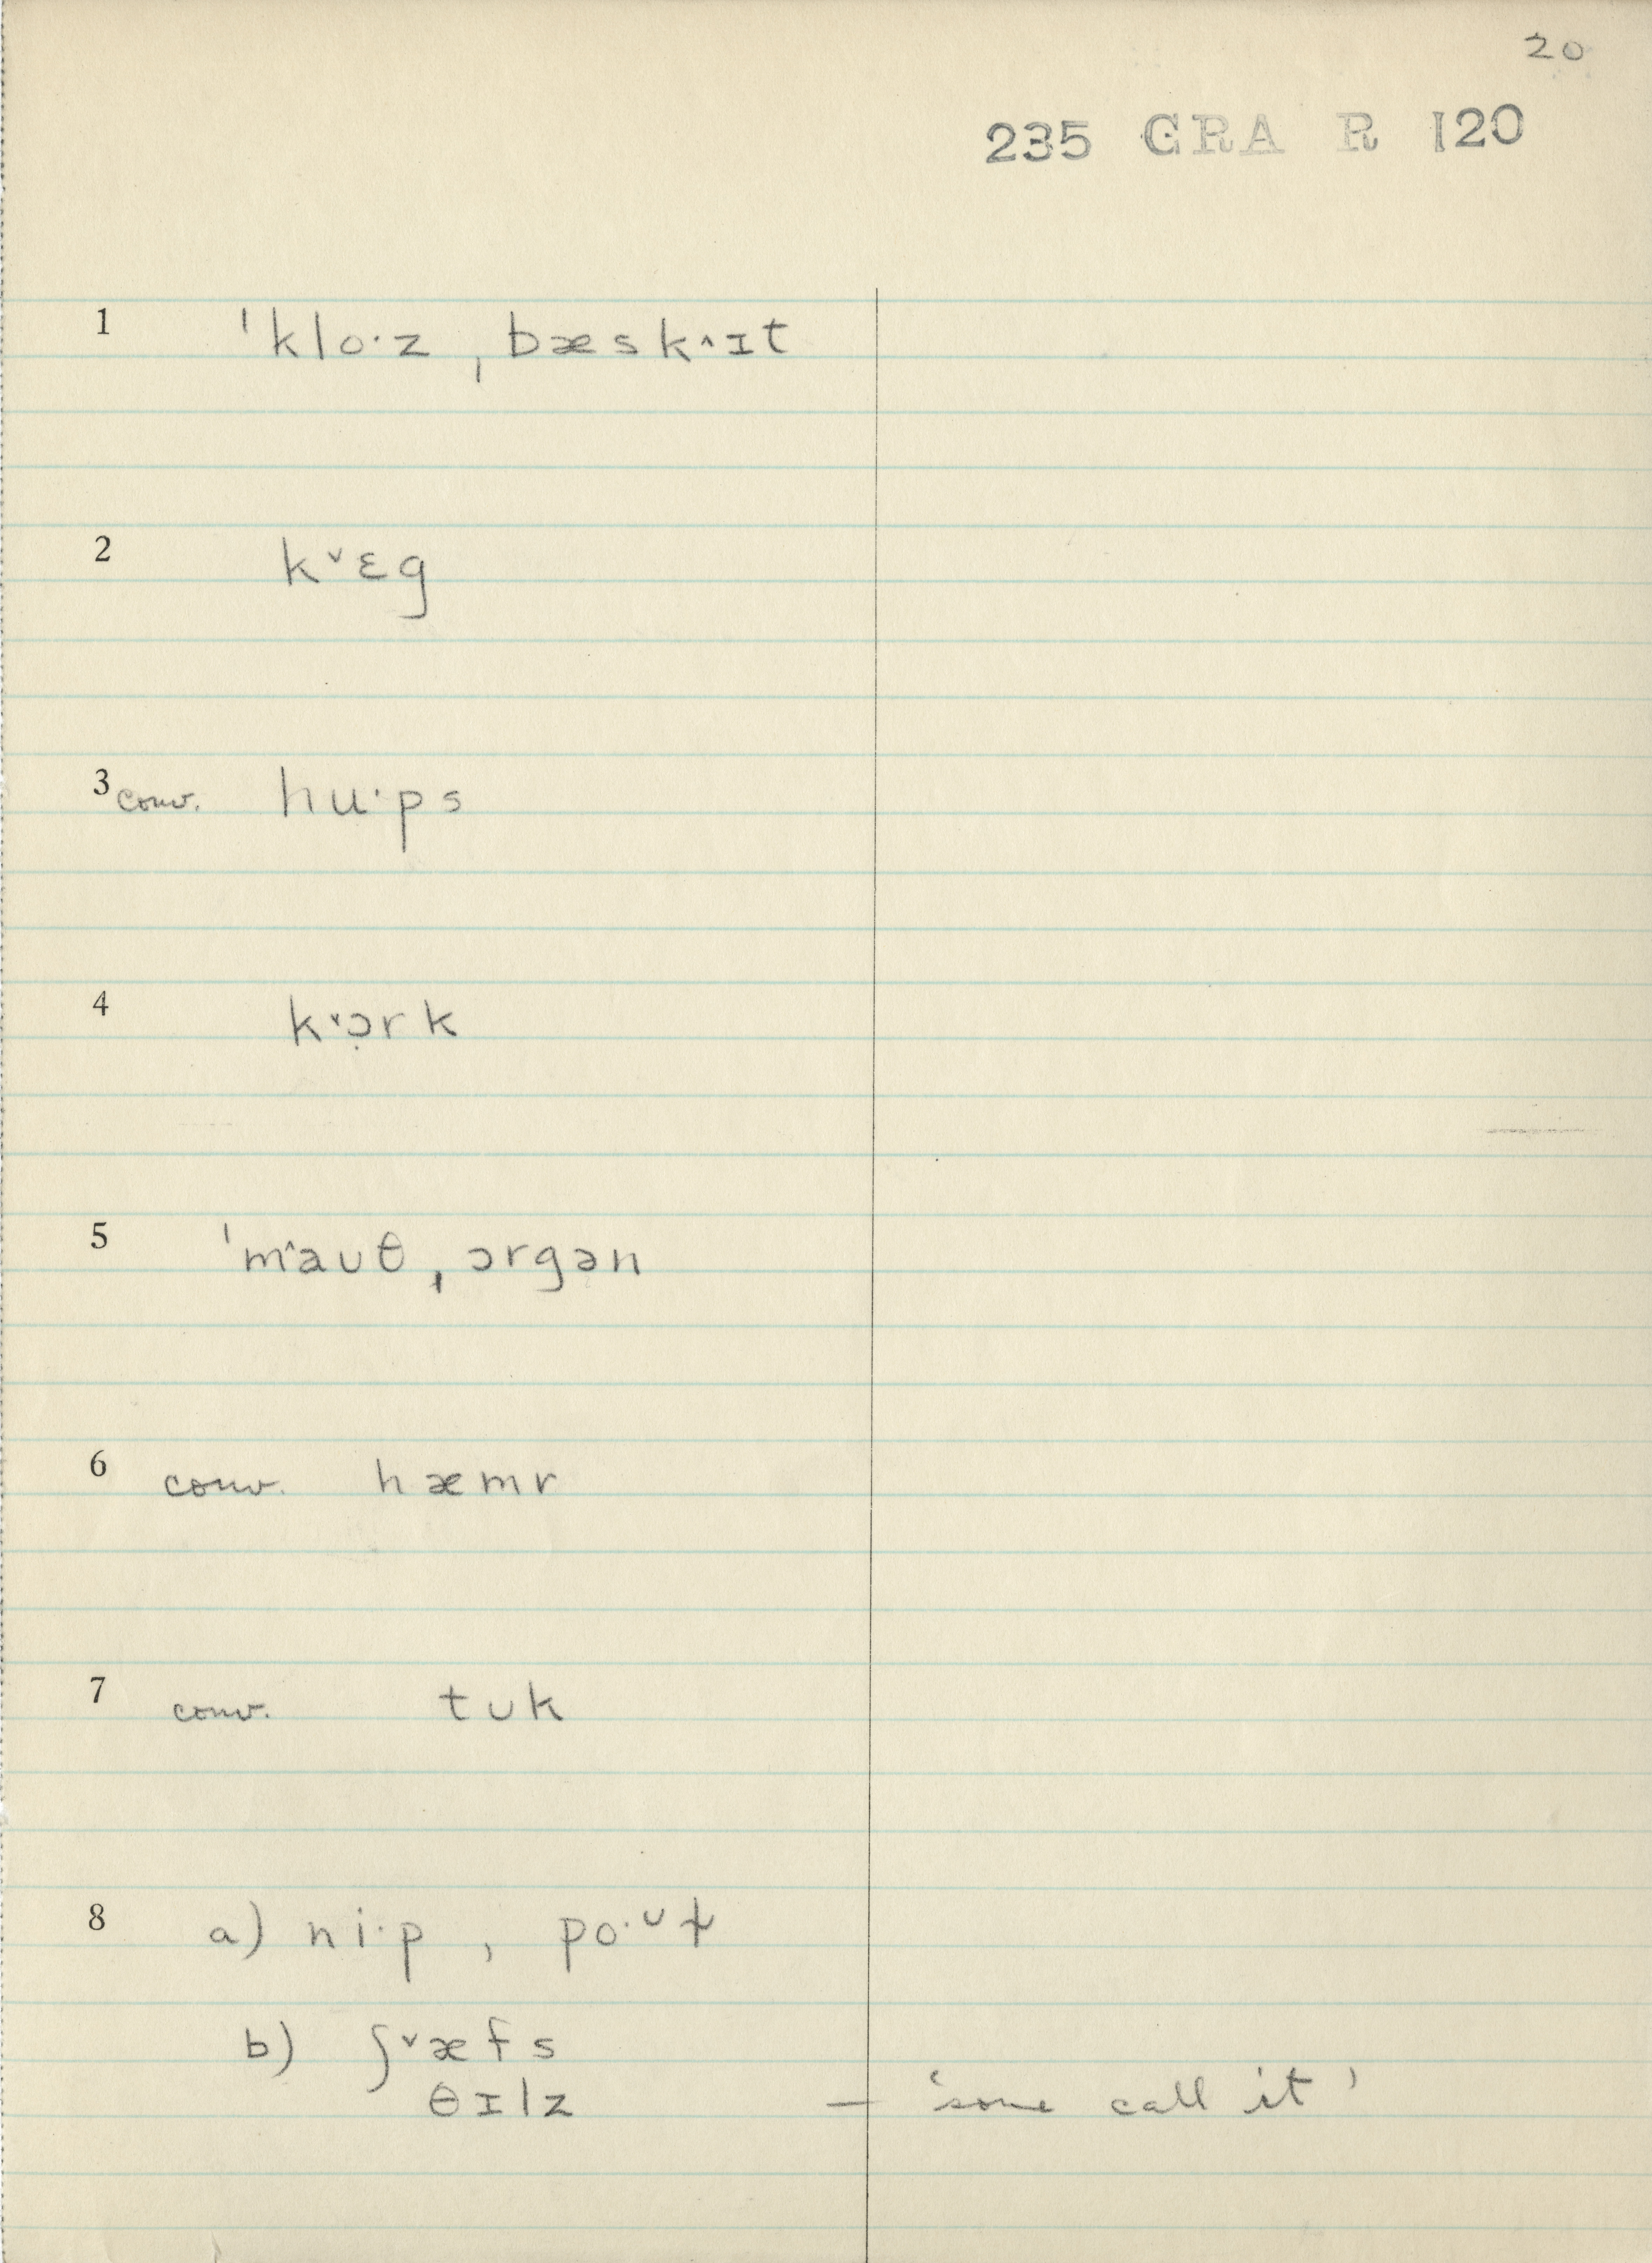 20
235 GRA R 120
1 ˈkloˑz ˌbæsk˄ɪt
2 k˅ɛg
3 conv. huˑps
4 k˅ɔ̣rk
5 ˈm˄aʊθ ˌɔrgən
6 conv. hæmr
7 conv. tʊk
8 a) niˑp , poˑᴜɫ
b) ʃ˅æfs
θɪlz — 'some call it'